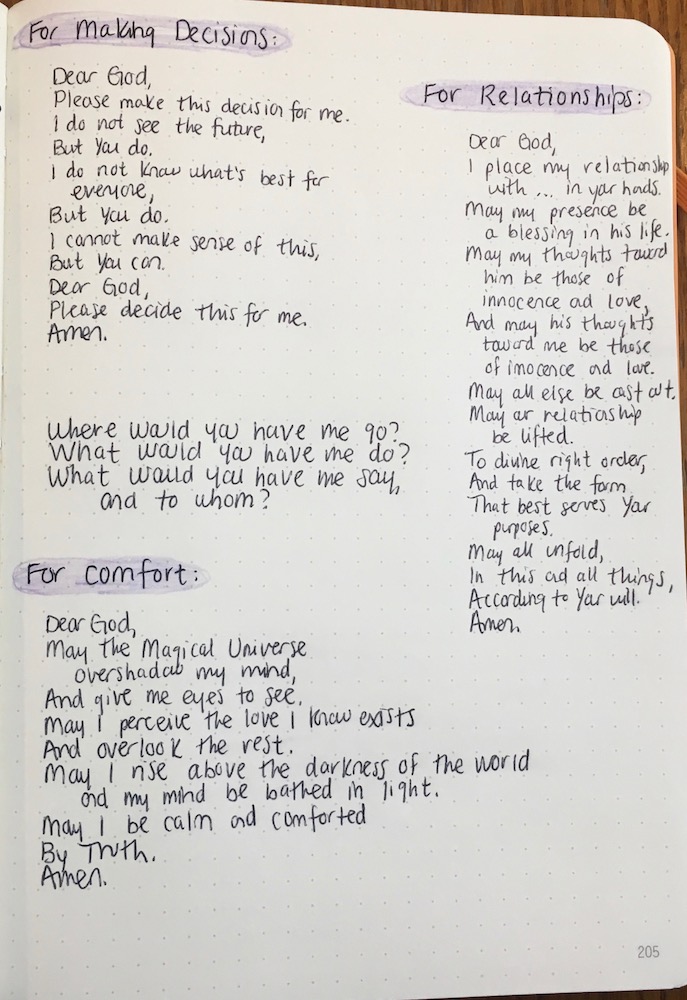 For Making Decisions:
Dear God,
Please make this decision for me.
I do not see the future,
But You do.
I do not know what's best for
everyone,
But You do.
I cannot make sense of this,
But You can.
Dear God,
Please decide this for me.
Amen.
Where would you have me go?
What would you have me do?
What would you have me say,
and to whom?
For Comfort:
Dear God,
May the Magical Universe
overshadow my mind,
And give me eyes to see.
May I perceive the love I know exists
And overlook the rest.
May I rise above the darkness of the world
and my mind be bathed in light.
May I be calm and comforted
By Truth.
Amen.
For Relationships:
Dear God,
I place my relationship
with ... in your hands.
May my presence be
a blessing in his life.
May my thoughts toward
him be those of
innocence and love,
And may his thoughts
toward me be those
of innocence and love.
May all else be cast out.
May our relationship
be lifted.
To divine right order,
And take the form
That best serves Your
purposes.
May all unfold,
In this and all things,
According to Your will.
Amen.
205